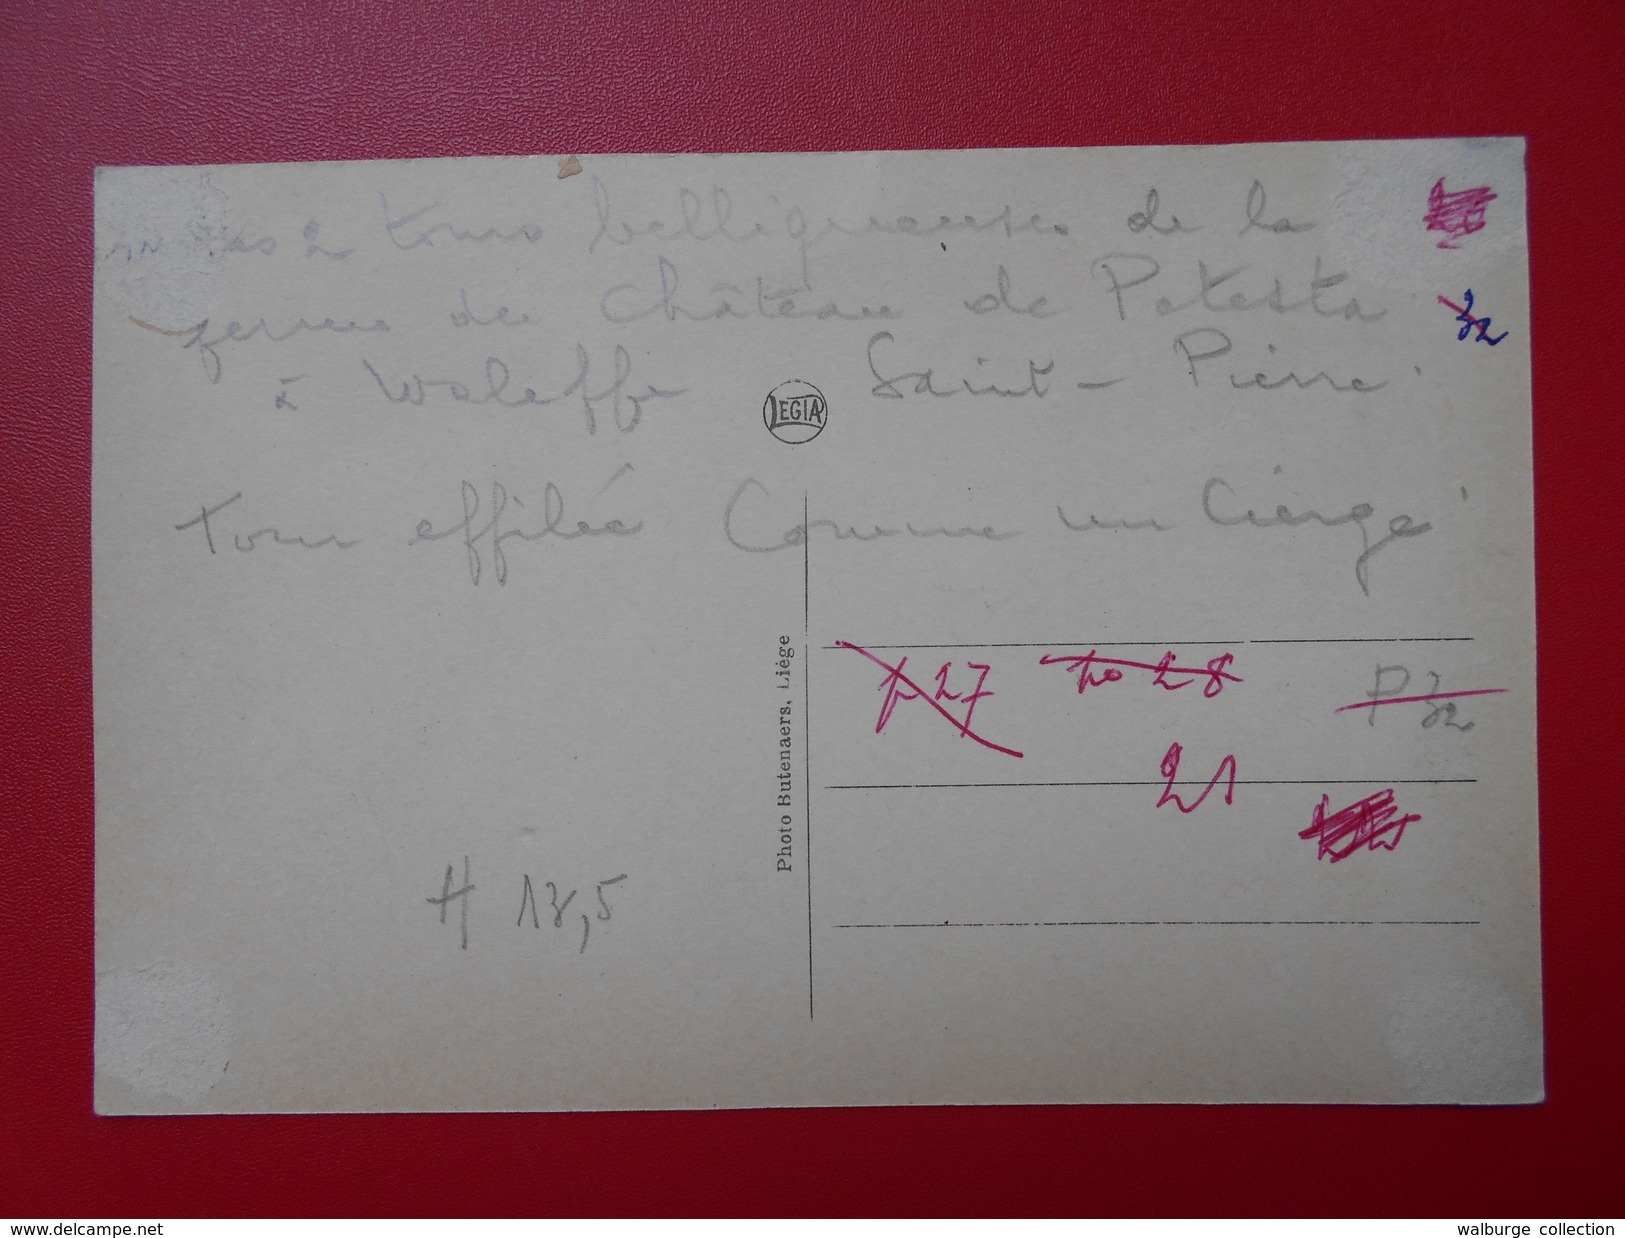 2 tours belliqueuses de la
ferme du château de Potesta
à Waleffe Saint-Pierre
32
LEGIA
Tour effilée Comme un Cierge
Photo Butenaers, Liége
p 27 po 28 P 32
21
H 13,5
www.delcampe.net walburge collection